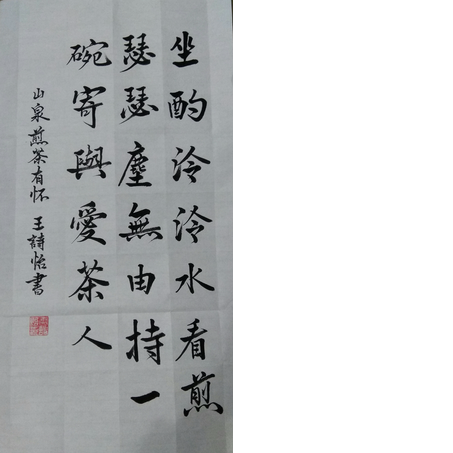 坐酌泠泠水看煎
瑟瑟塵無由持一
碗寄與愛茶人
山泉煎茶有怀 王詩怡書